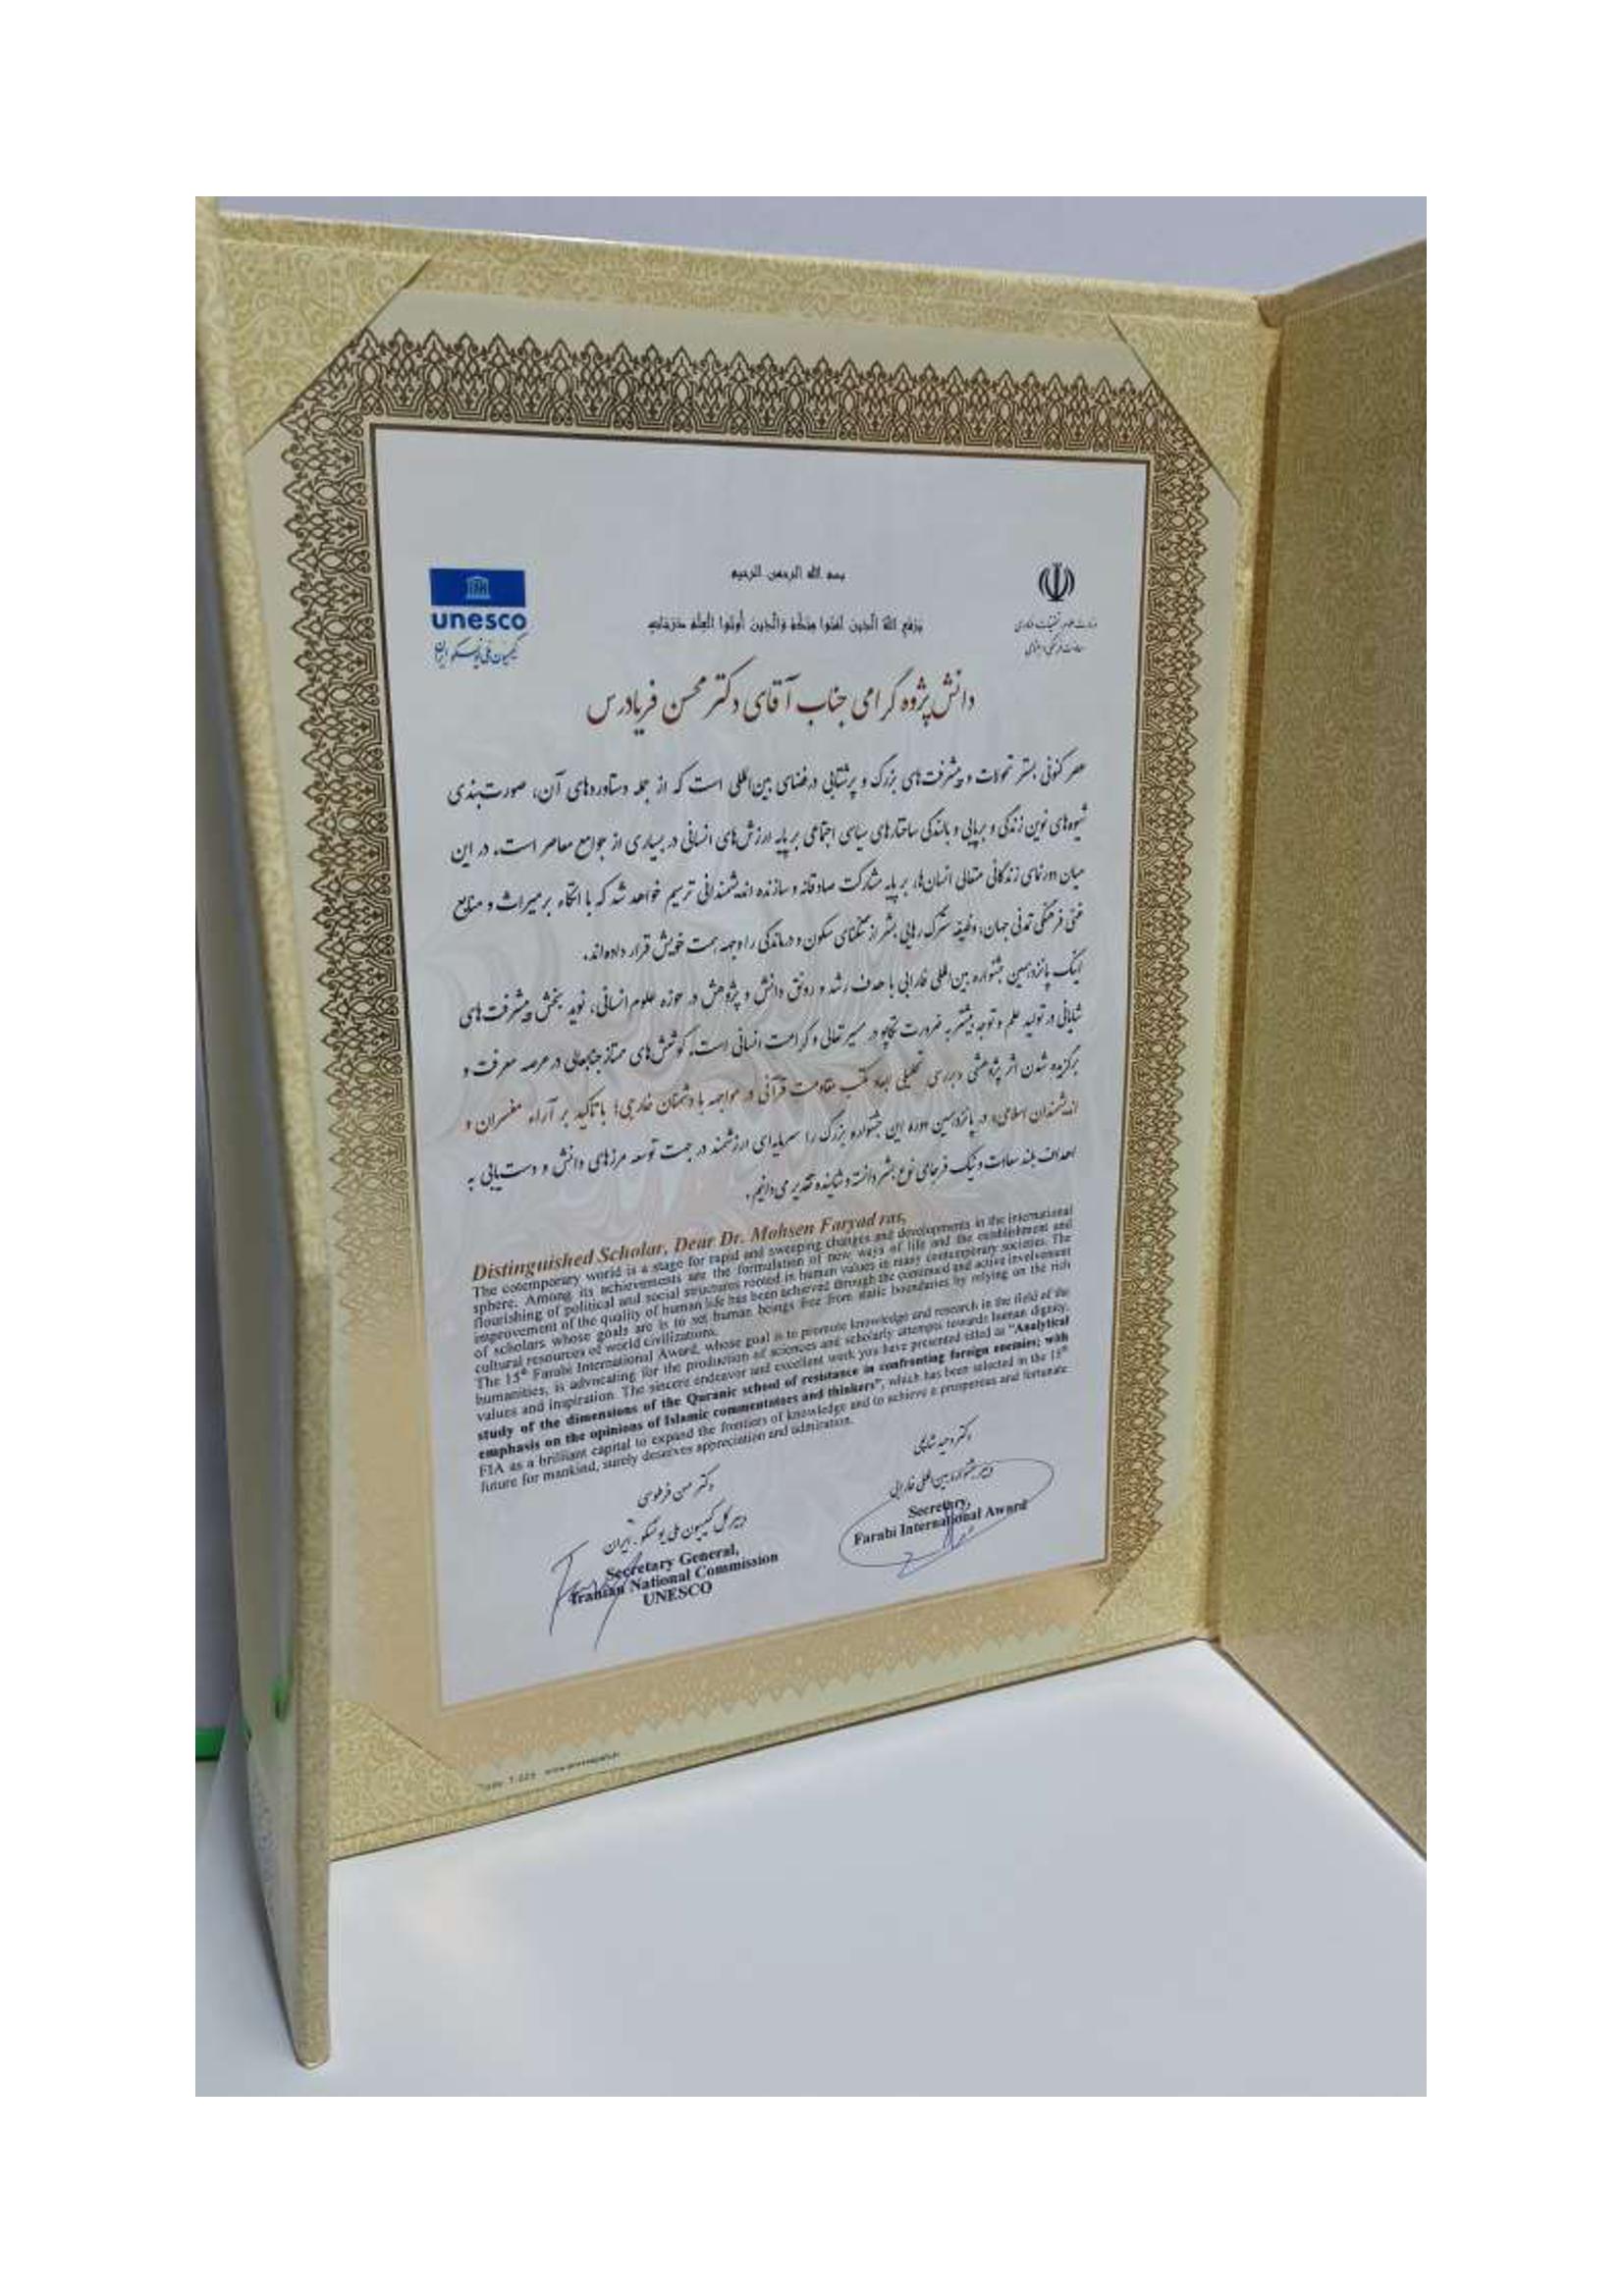 بسم الله الرحمن الرحیم
یرفع الله الذین آمنوا منکم والذین أوتوا العلم درجات
unesco
کمیسیون ملی یونسکو ایران
وزارت علوم، تحقیقات و فناوری
معاونت فرهنگی و اجتماعی
دانش پژوه گرامی جناب آقای دکتر محسن فریادرس
عصر کنونی بستر تحولات و پیشرفت‌های بزرگ و پرشتابی در فضای بین‌المللی است که از جمله دستاوردهای آن، صورت‌بندی
شیوه‌های نوین زندگی و برپایی و بالندگی ساختارهای سیاسی اجتماعی بر پایه ارزش‌های انسانی در بسیاری از جوامع معاصر است. در این
میان دورنمای زندگانی متعالی انسان‌ها، بر پایه مشارکت صادقانه و سازنده اندیشمندانی ترسیم خواهد شد که با اتکاء بر میراث و منابع
غنی فرهنگی تمدنی جهان، وظیفه سترگ رهایی بشر از تنگنای سکون و درماندگی را وجهه همت خویش قرار داده‌اند.
اینک پانزدهمین جشنواره بین‌المللی فارابی با هدف رشد و رونق دانش و پژوهش در حوزه علوم انسانی، نوید بخش پیشرفت‌های
شایانی در تولید علم و توجه بیشتر به ضرورت تکاپو در مسیر تعالی و کرامت انسانی است. کوشش‌های ممتاز جنابعالی در عرصه معرفت و
برگزیده شدن اثر پژوهشی «بررسی تحلیلی ابعاد مکتب مقاومت قرآنی در مواجهه با دشمنان خارجی؛ با تأکید بر آراء مفسران و
اندیشمندان اسلامی» در پانزدهمین دوره این جشنواره بزرگ را سرمایه‌ای ارزشمند در جهت توسعه مرزهای دانش و دست‌یابی به
اهداف بلند سعادت و نیک فرجامی نوع بشر دانسته و شایسته تقدیر می‌دانیم.
Distinguished Scholar, Dear Dr. Mohsen Faryad ras,
The cotemporary world is a stage for rapid and sweeping changes and developments in the international
sphere. Among its achievements are the formulation of new ways of life and the establishment and
flourishing of political and social structures rooted in human values in many contemporary societies. The
improvement of the quality of human life has been achieved through the continued and active involvement
of scholars whose goals are is to set human beings free from static boundaries by relying on the rich
cultural resources of world civilizations.
The 15th Farabi International Award, whose goal is to promote knowledge and research in the field of the
humanities, is advocating for the production of sciences and scholarly attempts towards human dignity,
values and inspiration. The sincere endeavor and excellent work you have presented titled as "Analytical
study of the dimensions of the Quranic school of resistance in confronting foreign enemies; with
emphasis on the opinions of Islamic commentators and thinkers", which has been selected in the 15th
FIA as a brilliant capital to expand the frontiers of knowledge and to achieve a prosperous and fortunate
future for mankind, surely deserves appreciation and admiration.
دکتر وحید شالچی
دبیر جشنواره بین‌المللی فارابی
Secretary,
Farabi International Award
دکتر حسن فرطوسی
دبیرکل کمیسیون ملی یونسکو - ایران
Secretary General,
Iranian National Commission
UNESCO